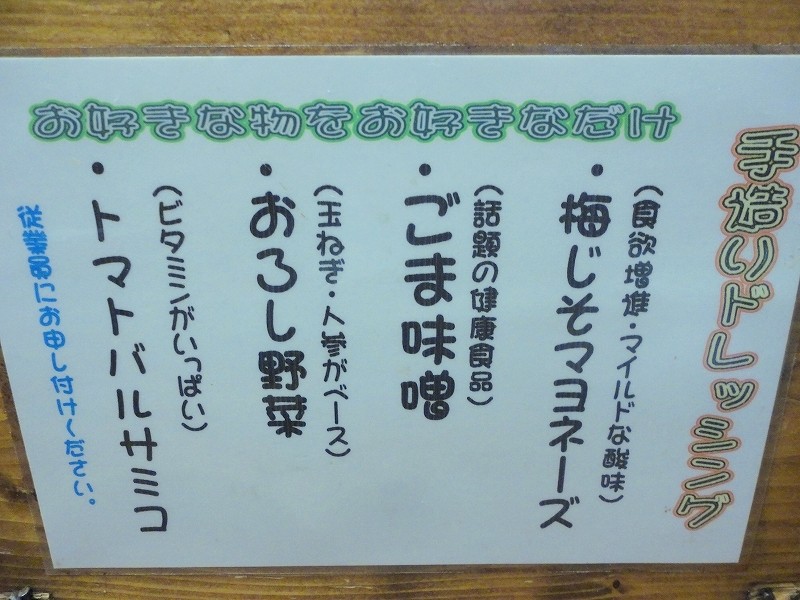 手造りドレッシング
お好きな物をお好きなだけ
（食欲増進・マイルドな酸味）
・梅じそマヨネーズ
（話題の健康食品）
・ごま味噌
（玉ねぎ・人参がベース）
・おろし野菜
（ビタミンがいっぱい）
・トマトバルサミコ
従業員にお申し付けください。